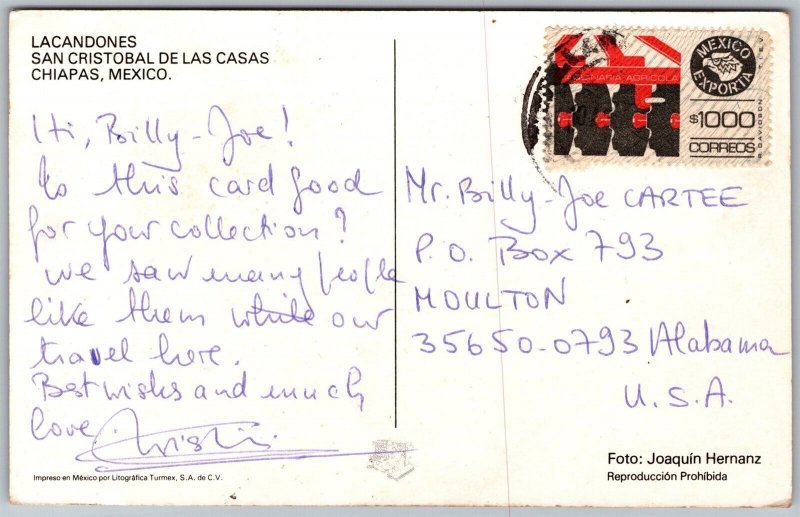 LACANDONES
SAN CRISTOBAL DE LAS CASAS
CHIAPAS, MEXICO.
Hi, Billy-Joe!
Is this card good
for your collection?
we saw many people
like them while our
travel here.
Best wishes and much
love.
MAQUINARIA AGRICOLA
MEXICO
EXPORTA
$1000
CORREOS
Mr. Billy-Joe CARTEE
P.O. Box 793
MOULTON
35650-0793 Alabama
U.S.A.
Foto: Joaquín Hernanz
Reproducción Prohíbida
Impreso en México por Litográfica Turmex, S.A. de C.V.